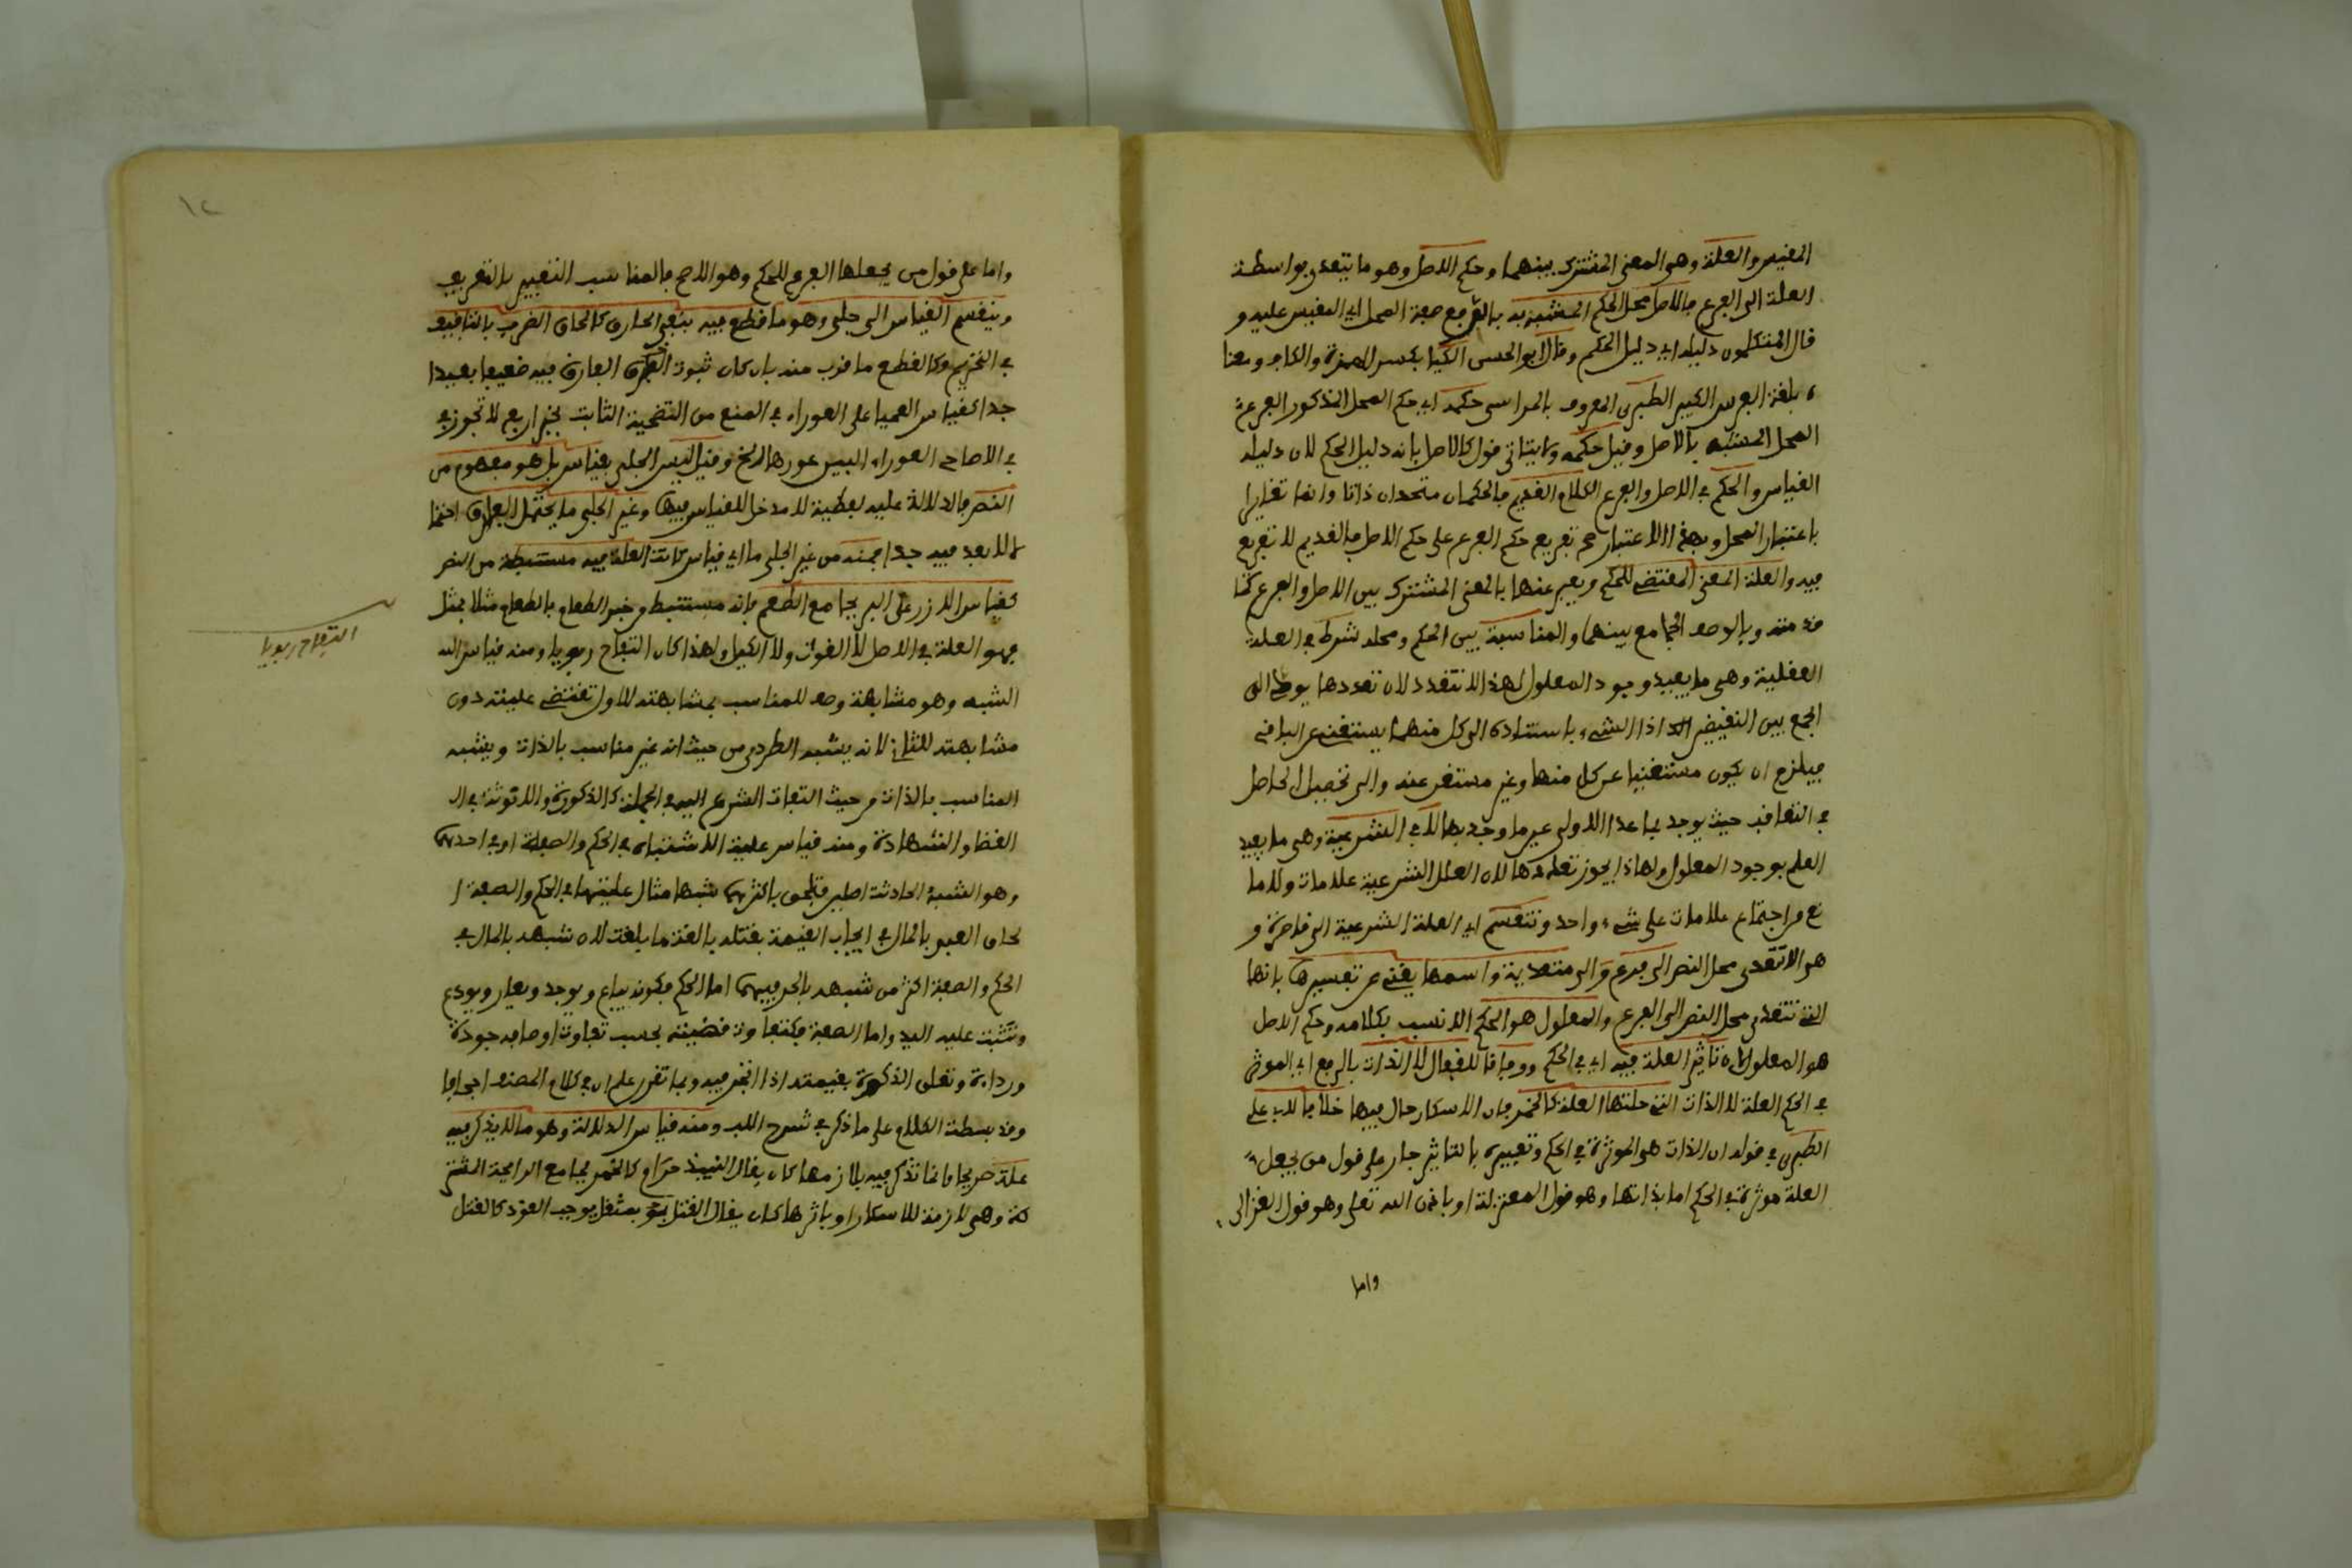 المقيس والعلة وهو المعنى المشترك بينهما وحكم الاصل وهو ما يتعدى بواسطة
العلة الى الفرع فالاصل محل الحكم المشبه به بالرفع صفة المحل اي المقيس عليه و
قال المتكلمون دليله اي دليل الحكم وقال ابو الحسن الكيا بكسر الهمزة والكاف ومعنا
ه بلغة الفرس الكبير الطبري المعروف بالهراسي حكمه اي حكم المحل المذكور والفرع
المحل المشبه بالاصل وقيل حكمه ولا يتاتى قول كالاصل بانه دليل الحكم لان دليله
القياس والحكم في الاصل والفرع الكلام القديم فالحكمان متحدان ذاتا وانما تغايرا
باعتبار المحل وبهذا الاعتبار صح تفريع حكم الفرع على حكم الاصل فالقديم لا تفريع
فيه والعلة المعنى المقتضي للحكم ويعبر عنها بالمعنى المشترك بين الاصل والفرع كما
قدمته وبالوصف الجامع بينهما والمناسبة بين الحكم ومحله شرط في العلة
العقلية وهي ما يفيد وجود المعلول لهذا لا تتعدد لان تعددها يوقع الى
الجمع بين النقيضين اذ الشيء باستناده الى كل منهما يستغني عن الباقي
فيلزم ان يكون مستغنيا عن كل منهما وغير مستغن عنه والى تحصيل الحاصل
في التعاقب حيث يوجد بما عدا الاولى عين ما وجد بها لا في الشرعية وهي ما يفيد
العلم بوجود المعلول ولهذا يجوز تعددها لان العلل الشرعية علامات ولا ما
نع من اجتماع علامات على شيء واحد وتنقسم اي العلة الشرعية الى قاصرة و
هو لا تتعدى محل النص الى فرع والى متعدية واسمها يغني عن تفسيرها بانها
التي تتعدى محل النص الى الفرع والمعلول هو الحكم الانسب بكلامه وحكم الاصل
هو المعلول لان تاثير العلة فيه اي في الحكم ووفاقا للقفال لا الذات بالرفع اي الموثر
في الحكم العلة لا الذات التي حلتها العلة كالخمر فان الاسكار حال فيها خلافا لابي علي
الطبري في قوله ان الذات هو الموثرة في الحكم وتعبيره بالتاثير جار على قول من يجعل
العلة موثرة في الحكم اما بذاتها وهو قول المعتزلة او باذن الله تعلى وهو قول الغزالي
واما
١٢
واما على قول من يجعلها المعرف للحكم وهو الاصح فالمناسب التعبير بالتعريف
وينقسم القياس الى جلي وهو ما قطع فيه بنفي الفارق كالحاق الضرب بالتافيف
في التحريم وكالقطع ما قرب منه بان كان ثبوت الفارق فيه ضعيفا بعيدا
جدا كقياس العميا على العوراء في المنع من التضحية الثابت بخبر اربع لا تجوز في
في الاضاحي العوراء البين عورها الخ وقيل ليس الجلي بقياس بل هو مفهوم من
النص فالدلالة عليه لفظية لا مدخل للقياس فيها وغير الجلي ما يحتمل الفارق احتما
لا لا بعد فيه جدا فمنه من غير الجلي ما اي قياس كانت العلة فيه مستنبطة من النص
كقياس الارز على البر بجامع الطعم فانه مستنبط من خبر الطعام بالطعام مثلا بمثل
فهو العلة في الاصل لا القوت ولا الكيل ولهذا كان التفاح ربويا ومنه قياس الـ
الشبه وهو مشابهة وصف للمناسب بمشابهته للاول تقتضي عليته دون
مشابهته للثاني لانه يشبه الطردي من حيث انه غير مناسب بالذات ويشبه
المناسب بالذات من حيث التفات الشرع اليه في الجملة كالذكورة والانوثة في الـ
القضا والشهادة ومنه قياس علية الاشتباه في الحكم والصفة او في احدهما
وهو الشبه الحادثة اصلين فتلحق باكثرهما شبها مثال عليتهما في الحكم والصفة ا
لحاق العبد بالمال في ايجاب القيمة بقتله بالغة ما بلغت لان شبهه بالمال في
الحكم والصفة اكثر من شبهه بالحر فيهما اما الحكم فكونه يباع ويوجر ويعار ويودع
وتثبت عليه اليد واما الصفة فكتفاوت قيمته بحسب تفاوت اوصافه جودة
ورداءة وتعلق الزكوة بقيمته اذا اتجر فيه وبما تقرر علم ان في كلام المصنف اجحافا
وقد بسطت الكلام على ما ذكر في شرح اللب ومنه قياس الدلالة وهو ما لا يذكر فيه
علة صريحا فانما تذكر فيه بلازمها كان يقال النبيذ حرام كالخمر بجامع الرايحة المشتر
كة وهي لازمة للاسكار او باثرها كان يقال القتل بمثقل يوجب القود كالقتل
التفاح ربويا